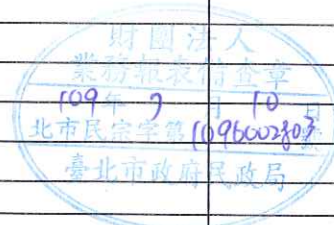 財團法人
業務報表備查章
109年7月10日
北市民宗字第1096002803號
臺北市政府民政局